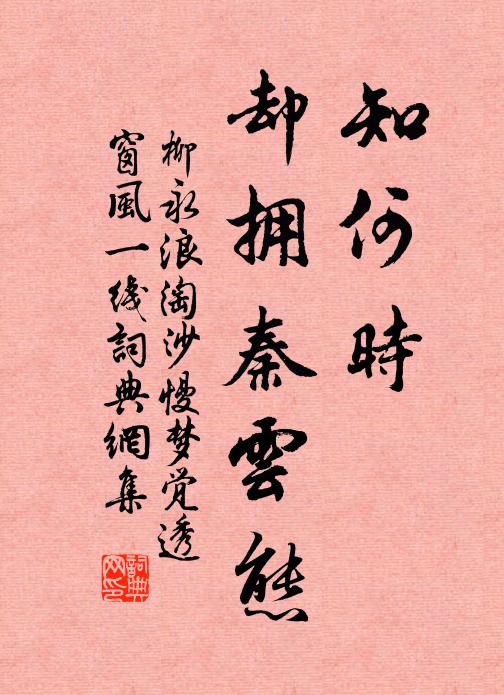 知何時
却拥秦雲態
柳永浪淘沙慢梦觉透
窗風一线詞典網集
詞典网印